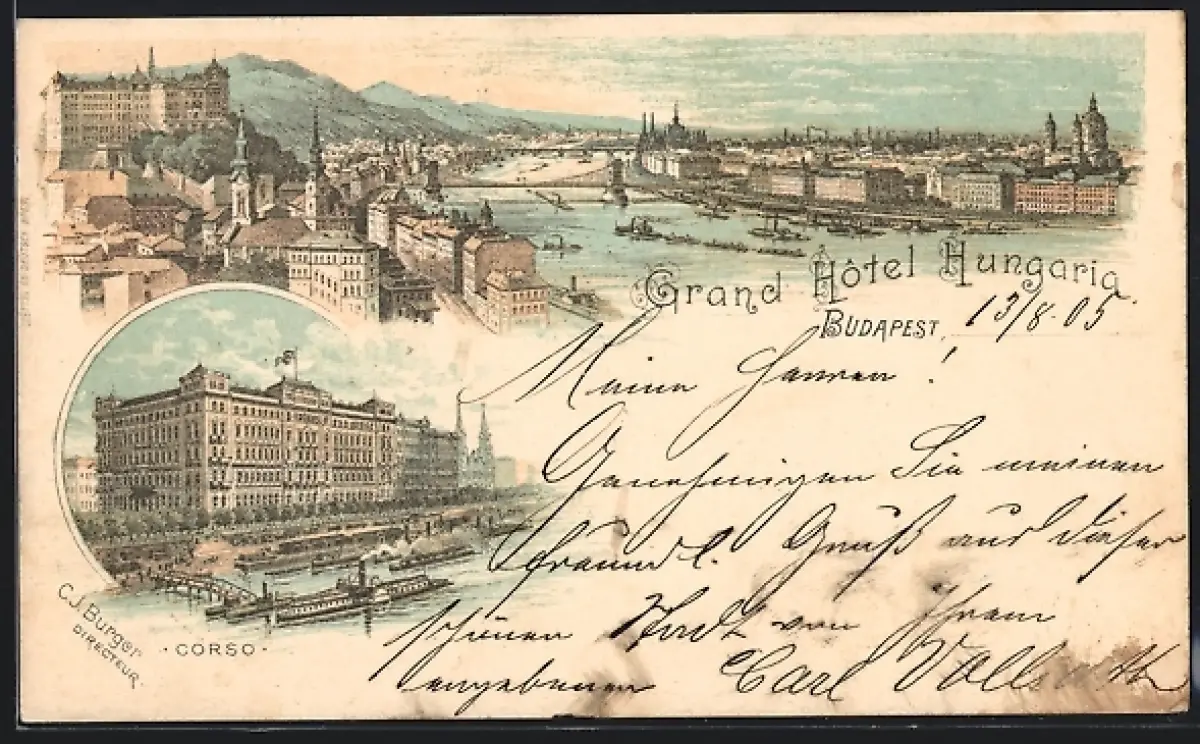 Grand Hôtel Hungaria
BUDAPEST, 13/8.05
Meine Herren!
Genehmigen Sie meinen
freundl. Gruß aus dieser
schönen Stadt von Ihrem
ergebenen Carl
C.J. Burger
DIRECTEUR
· CORSO ·